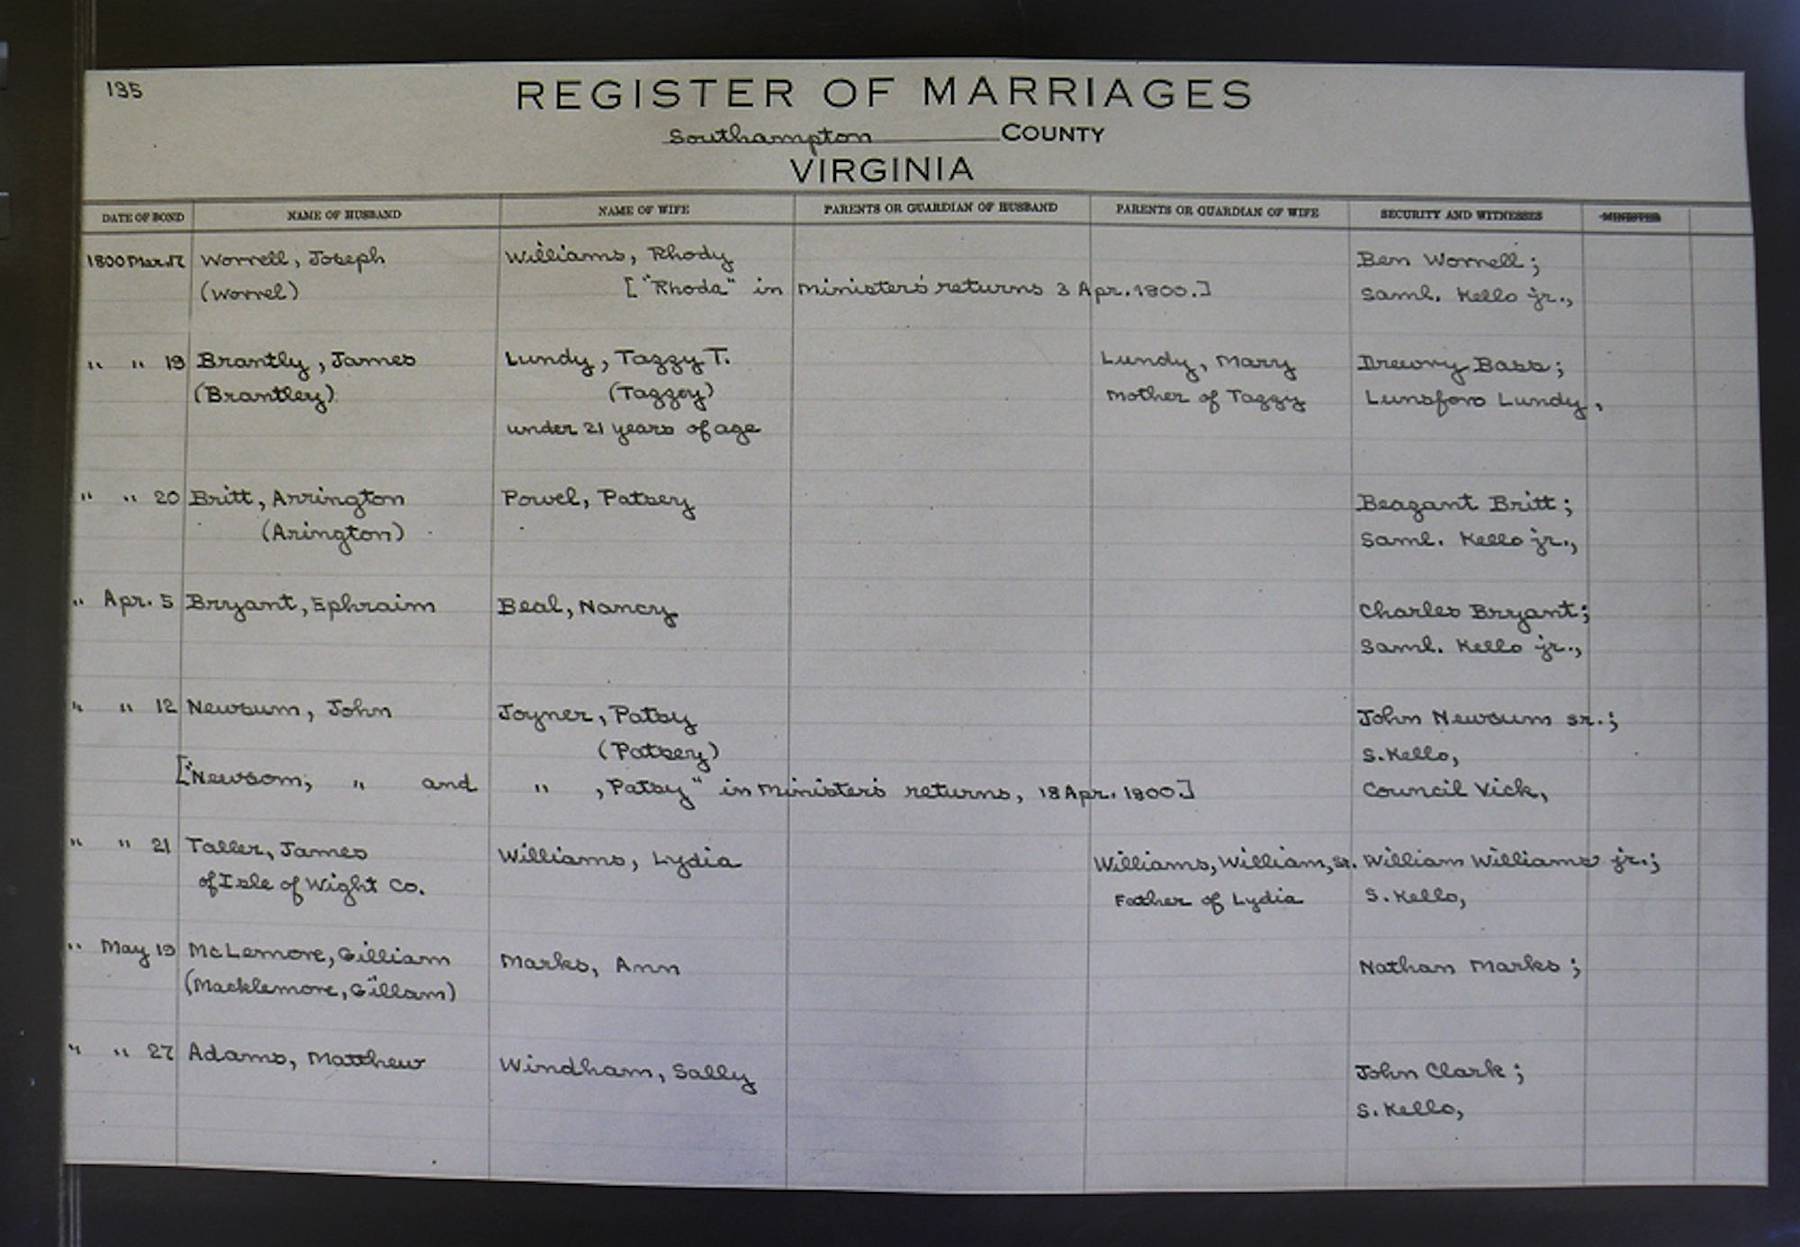 135
REGISTER OF MARRIAGES
Southampton COUNTY
VIRGINIA
DATE OF BOND NAME OF HUSBAND NAME OF WIFE PARENTS OR GUARDIAN OF HUSBAND PARENTS OR GUARDIAN OF WIFE SECURITY AND WITNESSES MINISTER
1800 Mar. 17 Worrell, Joseph Williams, Rhody Ben Worrell;
(Worrel) ["Rhoda" in minister's returns 3 Apr. 1800.] Saml. Kello jr.,
" " 19 Brantly, James Lundy, Taggy T. Lundy, Mary Drewry Bass;
(Brantley) (Taggey) mother of Taggy Lunsford Lundy,
under 21 years of age
" " 20 Britt, Arrington Powel, Patsey Beagant Britt;
(Arington) Saml. Kello jr.,
" Apr. 5 Bryant, Ephraim Beal, Nancy Charles Bryant;
Saml. Kello jr.,
" " 12 Newsum, John Joyner, Patsy John Newsum sr.;
(Patsey) S. Kello,
["Newsom, " and " , Patsy" in minister's returns, 18 Apr. 1800.] Council Vick,
" " 21 Taller, James Williams, Lydia Williams, William, sr. William Williams jr.;
of Isle of Wight Co. Father of Lydia S. Kello,
" May 19 McLemore, Gilliam Marks, Ann Nathan Marks;
(Macklemore, Gillam)
" " 27 Adams, Matthew Windham, Sally John Clark;
S. Kello,